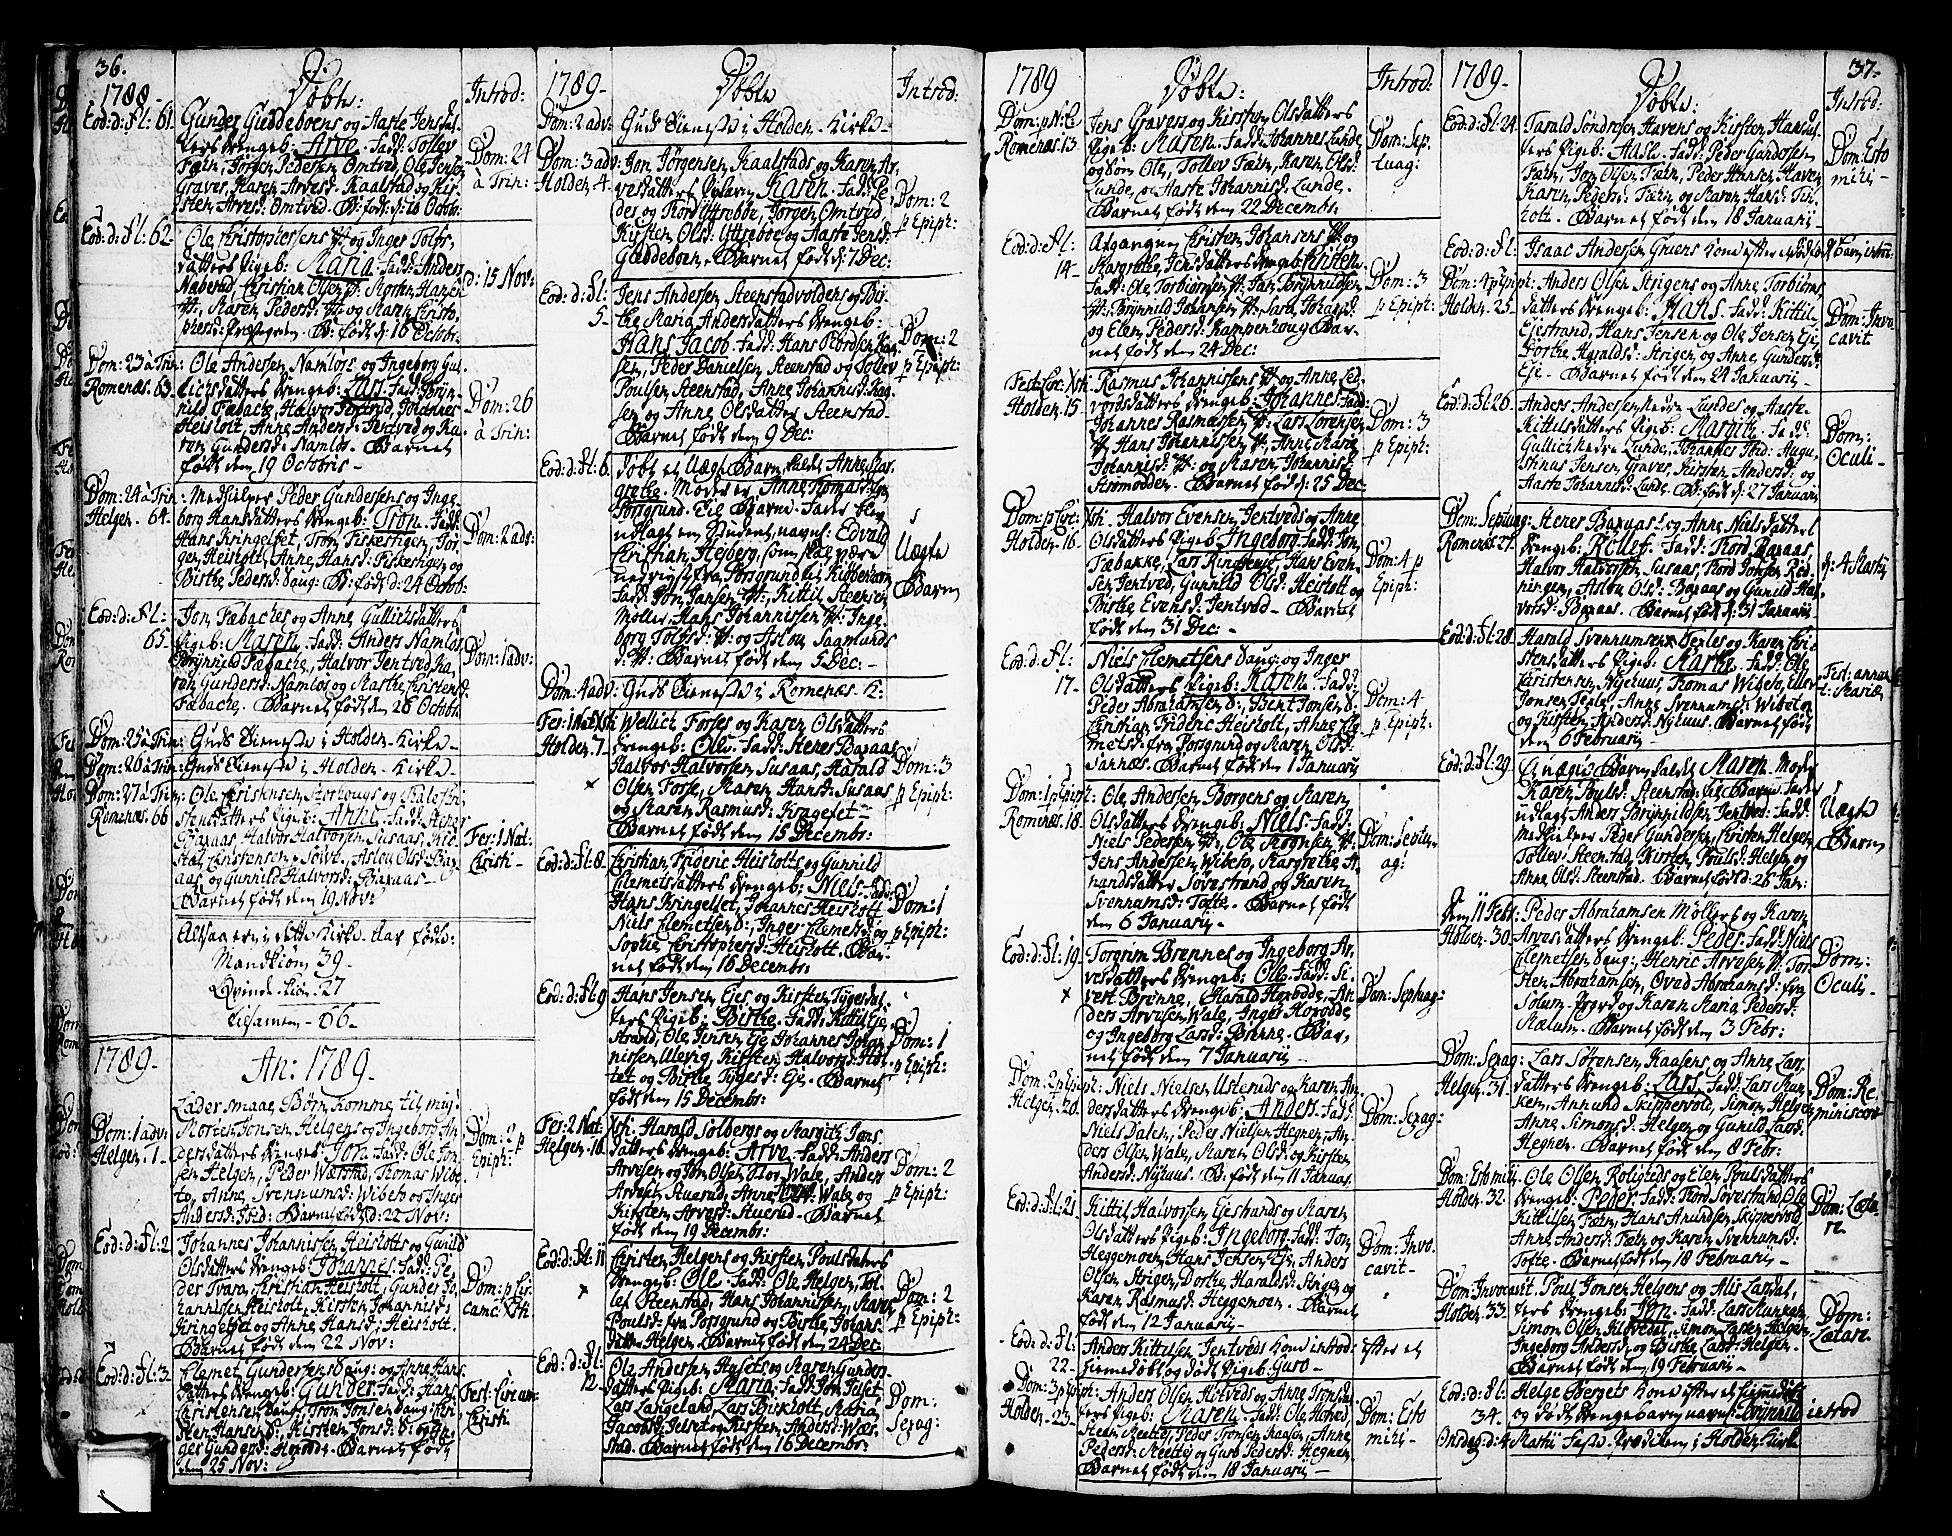 36.
1788-
Døbte:
Introd:
Eod: d: fl: 61.
Gunder Gieddeboens og Aaste Jensdat-
ters drengeb: Arve. Fadd: Tollev
Fæen, Jørgen Pedersen Omtved, Ole Jensen
Graver, Karen Arvesd: Kaalstad og Kir-
sten Arvesd: Omtved. B: født d: 18 Octobr:
Dom: 24
à Trin:
Eod: d: fl: 62-
Ole Christophersens og Inger Tolfs-
datters Pigeb: Maria. Fadd: Anders
Naberud, Christian Olsen, Morten Hansen
Maren Pedersd: og Maren Christo-
phersd: B: født d: 16 Octobr:
d: 15 Nov:
Dom: 23 à Trin:
Romenæs. 63.
Ole Andersen Namløs og Ingeborg Gul-
lichsdatters drengeb: Lars. Fadd: Bryn-
nild Fæbache, Halvor Jentved, Johannes
Heisholt, Anne Andersd: Jentved og Ka-
ren Gundersd: Namløs. Barnet
født den 19 Octobris-
Dom: 26
à Trin:
Dom: 24 à Trin:
Helgen. 64.
Medhielper Peder Gundersens og Inge-
borg Hansdatters drengeb: Tron. Fadd:
Hans Kringelset, Tron Fiskerhgen, Jør-
gen Heisholt, Anne Hansd: Fiskerhgen og
Birthe Pedersd: Daug. B: født d: 24 Octob:
Dom: 2 adv:
Eod: d: fl:
65-
Jon Fæbaches og Anne Gullichsdatters
Pigeb: Maren. Fadd: Anders Namløs,
Brynnild Fæbache, Halvor Jentved, Ka-
ren Gundersd: Namløs og Marthe Christensd:
Fæbache. Barnet født den 28 Octobr:
Dom: 1 adv:
Dom: 25 à Trin:
Guds Tieneste i Holden-Kirke-
Dom: 26 à Trin:
Guds Tieneste i Holden-Kirke-
Dom: 27 à Trin:
Romenæs. 66
Ole Christensen og
datters Pigeb: Anne. Fadd: Stener
Baxaas, Halvor Halvorsen Susaas,
Christensen, Aslou Olsd: Bax-
aas og Gunnild Halvorsd: Baxaas-
Barnet født den 19 Nov:
Fer: 1 Nat:
Christi-
Altsaa ere i dette Kirke-Aar fødte:
Mandkiøn 39-
Qvinde-kiøn-27
Tilsamen-66-
1789-
An: 1789-
Lader smaae Børn komme til mig.
Dom: 1 adv:
Helgen-1-
Morten Jonsen Helgens og Ingeborg An-
dersdatters drengeb: Jon. Fadd: Ole Jon-
sen Helgen, Peder Wærstad, Thomas Wibe-
to, Anne Svennumsd: Wibeto og Inger
Andersd: Barnet født d: 22 Nov:
Dom: 2 p
Epiph:
Eod: d: fl: 2
Johannes Johannissen Heisholts og Gunild
Olsdatters drengeb: Johannes. Fadd: Pe-
der Tvara, Christian Heisholt, Gunder Jo-
hannissen Heisholt, Kirsten Johannisd:
Kringelset og Anne Hansd: Heisholt.
Barnet født den 22 Nov:
Dom: p Cir-
camc: Xsti
Eod: d: fl: 3
Clemet Gundersens Daug: og Anne Hans-
datters drengeb: Gunder. Fadd: Hans
Christensen Daug, Tron Jonsen Daug, Kir-
sten Hansend: Kirsten Jonsd: D: og
Gundersd: Barnet født
den 25 Nov:
Fest: Circum:
Christi
1789-
Døbte
Introd:
Dom: 2 adv:
Guds Tieneste i Holden-Kirke-
Dom: 3 adv:
Holden. 4-
Jon Jørgensen Kaalstads og Karen Ar-
vesdatters Pigebarn Karen. Fadd: Pe-
der og Thord Ytterbøe, Jørgen Omtved,
Kirsten Olsd: Ytterbøe og Aaste Jensd:
Gieddeboen. Barnet født d: 7 Dec:
Dom: 2
p Epiph:
Eod: d: fl:
5-
Jens Andersen Steenstadvoldens og Bir-
the Maria Andersdatters drengeb:
Hans Jacob. Fadd: Hans Thordsen
Peder Danielsen Steenstad og Tollev
Poulsen Steenstad, Anne Johannisd: Kaa-
sen og Anne Olsdatter Steenstad.
Barnet født den 9 Dec:
Dom: 2
p Epiph:
Eod: d: fl: 6.
Døbt et Uægte Barn, kaldet Anne Mar-
grethe. Moder er Anne Thomasd:
Porsgrund. Til Barne-Fader blev
udlagt en Student navnl: Edvald
Christian Heyberg, som skal være
udreist fra Porsgrund til Kiøbenhavn
Fadd: Jon Jansen, Kittil Steensen
Møller, Hans Johannissen, Inge-
borg Tolfsd: og Aslou Saamlunds
d: Barnet født den 5 Dec:-
Uægte
Barn
Dom: 4 adv:
Guds Tieneste i Romenæs-K:
Fer: 1 Nat: Xsti
Holden-7-
Wellich Forses og Karen Olsdatters
drengeb: Oliv. Fadd: Stener Baxaas,
Halvor Halvorsen Susaas, Harald
Olsen Forse, Maren Hansd: Susaas
og Maren Rasmusd: Kragefet-
Barnet født den 15 Decembr:
Dom: 3
p Epiph:
Eod: d: fl: 8.
Christian Frideric Heisholts og Gunnild
Clemetsdatters drengeb: Niels. Fadd:
Hans Kringelset, Johannes Heisholt,
Niels Clemetsen D:, Inger Clemetsd: og
Sophie Christophersd: Heisholt. Bar-
net født den 16 Decembr:
Dom: 1
p Epiph:
Eod: d: fl: 9
Hans Jensen Ejes og Kirsten Tygesdat-
ters Pigeb: Birthe. Fadd: Kittil Eje-
strand, Ole Jensen Eje, Johannes Johan-
nissen Ulevig, Kirsten Halvorsd: Hol-
tet og Birthe Tygesd: Eje. Barnet
født den 15 Decembr:
Dom: 1
p Epiph:
Fer: 2 Nat:
Helgen. 10.
Xsti. Harald Solbergs og Margith Jons-
datters drengeb: Arve. Fadd: Anders
Arvesen og Jon Olsen Flor, Wale, Anders
Arvesen Stuerud, Anne Wale og
Kirsten Arvesd: Stuerud-Barnet
født den 19 Decembr:
Dom: 2
p Epiph:
Eod: d: fl: 11
Christen Helgens og Kirsten Poulsdatters
drengeb: Ole. Fadd: Ole Helgen, Tol-
lef Steenstad, Hans Johannissen, Maren
Poulsd: fra Porsgrund og Birthe Johans-
datter Helgen. Barnet født den 24 Dec:
Dom: 2
p Epiph:
Eod: d: fl:
12-
Ole Andersen Husets og Maren Gunders-
datters Pigeb: Maria. Fadd: Jon Jelset
Lars Langeland, Lars Birkholt, Maria
Jacobsd: Jelset og Kirsten Andersd: Wær-
stad. Barnet født den 16 Decembr:
Dom:
Sexag:
1789
Døbte:
Introd:
Dom: p N: C
Romenæs. 13
Jens Gravers og Kirsten Olsdatters
Pigeb: Maren. Fadd: Johannes Lunde,
og søn Ole, Tollev Fæen, Maren Olsd:
Lunde, og Aaste Johannisd: Lunde.
Barnet født den 22 Decembr:
Dom: Sep-
tuag:
Eod: d: fl:
14-
Afgangne Christen Johansens og
Margrethe Jensdatters drengeb: Christen
Fadd: Ole Torbiørnsen, Jan Brynnildsen
Brynnild Johansen, Sara Johansd:
og Elen Pedersd: Kampenhoug. Bar-
net født den 24 Dec:
Dom: 3
p Epiph:
Fest: Circ: Xsti
Holden. 15
Rasmus Johannissens og Anne Led-
vordsdatters drengeb: Johannes. Fadd:
Johannes Rasmussen, Lars Lorensen
Hans Johannissen, Anne Maria
Johannisd: og Maren Johannisd:
Strømodden. Barnet født d: 25 Dec
Dom: 3
p Epiph:
Dom: p Circ:
Holden-16-
Xsti. Halvor Evensen Jentveds og Anne
Olsdatters Pigeb: Ingeborg. Fadd: Jon
Fæbakke, Lars Ringhuus, Hans Even-
sen Jentved, Gunnild Olsd: Heisholt og
Birthe Evensd: Jentved-Barnet
født den 31 Dec:-
Dom: 4 p
Epiph:
Eod: d: fl:
17-
Niels Clemetsens Daug: og Inger
Olsdatters Pigeb: Karen. Fadd:
Peder Abrahamsen D:, Bent Jonsen D:
Christian Frideric Heisholt, Anne Cle-
metsd: fra Porsgrund og Maren Olsd:
Sannæs. Barnet født den 1 Januarij
Dom: 4
p Epiph:
Dom: 1 p Epiph:
Romenæs. 18.
Ole Andersen Borgens og Maren
Olsdatters drengeb: Niels. Fadd:
Niels Pedersen, Ole Mognsen
Jens Andersen Wibeto, Margrethe A-
mandsdatter Sørestrand og Karen
Svenumsd: Tofte. Barnet født
den 6 Januarij-
Dom: Septu-
ag:
Eod: d: fl: 19-
Torgrim Brønnes og Ingeborg Ar-
vesdatters drengeb: Ole. Fadd: Si-
vert Brønne, Harald Horodde, An-
ders Arvesen Wale, Inger Horodde
og Ingeborg Larsd: Brønne. Bar-
net født den 7 Januarij-
Dom: Septuag:
Dom: 2 p Epiph:
Helgen. 20.
Niels Nielsen Usteruds og Karen An-
dersdatters drengeb: Anders. Fadd:
Niels Dalen, Peder Nielsen Hegnen, An-
ders Olsen Wale, Maren Olsd: og Kirsten
Andersd: Nyhuus. B: født den 11 Januar:
Dom: Sexag:
Eod: d: fl: 21-
Kittil Halvorsen Ejestrands og Maren
Olsdatters Pigeb: Ingeborg. Fadd: Jon
Heggemoen, Hans Jensen Eje, Anders
Olsen Strigen, Dorthe Haraldsd: Strigen og
Karen Rasmusd: Heggemoen. Barnet
født den 12 Januarij-
Dom: Invo-
cavit-
Eod: d: fl:
22-
Anders Kittilsen Jentveds kone introd:
hiemedøbt og dødt Pigeb: Guro-
Efter et
Dom: 3 p Epiph:
Holden-23-
Anders Olsen Holtveds og Anne Trons-
ters Pigeb: Maren. Fadd: Ole Holtved,
Peder Jonsen Kaasen, Anne
Pedersd: og Guro Pedersd: Hegnen.
Barnet født den 18 Januarij-
Dom: Esto
mihi-
37-
1789-
Døbte:
Introd:
Eod: d: fl: 24.
Tarald Sondresen Havens og Kirsten Hansdat-
ters Pigeb: Aase. Fadd: Peder Gundersen
Fæen, Jon Olsen Fæen, Peder Hansen Haven
Karen Pedersd: Fæen og Maren Hansd: Tin-
holt. Barnet født den 18 Januarij-
Dom: Esto
mihi-
Eod: d: fl:
Isaac Andersen Gruens kone efter et dødfødt Barn introd:
Dom: 4 p Epiph:
Holden-25-
Anders Olsen Strigens og Anne Torbiørns-
datters drengeb: Hans. Fadd: Kittil
Ejestrand, Hans Jensen og Ole Jensen Eje,
Dorthe Haraldsd: Strigen og Anne Gundersd:
Eje-Barnet født den 24 Januarij-
Dom: Invo-
cavit
Eod: d: fl: 26.
Anders Andersen nedre Lundes og Aaste
Kittilsdatters Pigeb: Margith. Fadd:
Gullich nedre Lunde, Johannes ibid: Augu-
stinus Jensen Graver, Kirsten Andersd: og
Aaste Johannisd: Lunde. B: født d: 27 Januarij
Dom:
Oculi-
Dom: Septuag:
Romenæs. 27.
Stener Baxaases og Anne Nielsdatters
drengeb: Rollef. Fadd: Thord Baxaas,
Halvor Halvorsen Susaas, Thord Jonsen Rød-
ningen, Aslou Olsd: Baxaas og Gunild Hal-
vorsd: Baxaas. Barnet født den 31 Januarij
d: 4 Martij
Eod: d: fl: 28.
Harald Svennumsens Teyles og Karen Chri-
stensdatters Pigeb: Marthe. Fadd: Ole
Christensen Nyehuus, Thomas Wibeto, Ellev
Jonsen Teyle, Anne Svennumsd: Wibeto
og Kirsten Andersd: Nyhuus. Barnet født
den 6 Februarij-
Fest: annun:
t: Mariæ
Eod: d: fl: 29.
Et uægte Barn kaldet Maren. Moder
Karen Poulsd: Steenstad. Til Barne-Fader
udlagt Anders Brynnildsen Jentved. Fadd:
Medhielper Peder Gundersen, Christen Helgen,
Tollev Steenstad, Kirsten Poulsd: Helgen og
Anne Olsd: Steenstad. Barnet født d: 26 Jan:
Uægte
Barn
Den 11 Febr:
Holden-30.
Peder Abrahamsen Møllers og Karen
Arvesdatters drengeb: Peder. Fadd: Niels
Clemetsen Daug:, Henric Arvesen, Tor-
sten Abrahamsen, Oved Abrahamsd: fra
Solum-Præstg: og Karen Maria Pedersd:
Mælum. Barnet født den 3 Febr:
Dom:
Oculi-
Dom: Sexag:
Helgen. 31.
Lars Sørensen Kaasens og Anne Lars-
datters drengeb: Lars. Fadd: Lars Mun-
ken, Annund Skippervold, Simon Helgen,
Anne Simonsd: Helgen og Gunild Larsd:
Hegnen. Barnet født den 8 Febr:
Dom: Re-
miniscere
Dom: Esto mihi
Holden. 32.
Ole Olsen Roligheds og Elen Poulsdatters
drengeb: Peder. Fadd: Thord Sørestrand, Ole
Kittilsen Fæen, Hans Anundsen Skippervold,
Anne Andersd: Fæen og Karen Svennumsd:
Tofte. Barnet født den 18 Februarij-
Dom: Læta-
re.
Dom: Invocavit
Holden. 33.
Poul Jonsen Helgens og Alis Larsdat-
ters drengeb: Jon. Fadd: Lars Munken,
Simon Olsen Klovedal, Simon Larsen Helgen,
Ingeborg Andersd: og Birthe Larsd: Helgen.
Barnet født den 19 Februarij-
Dom:
Lætare.
Eod: d: fl:
34.
Helge Bergets kone efter et hiemmedøbt
og dødt drengebarn navnl: Brynnild introd
Onsdag d: 4
Martij Faste-Prædiken i Holden-Kirke